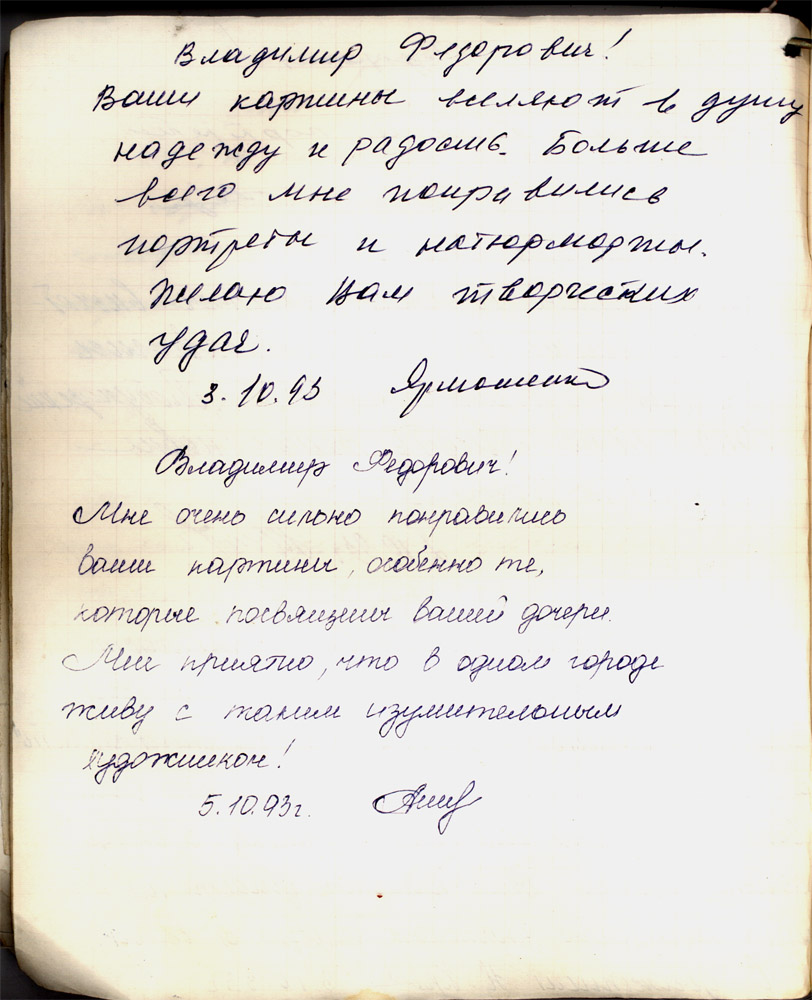 Владимир Федорович!
Ваши картины вселяют в душу
надежду и радость. Больше
всего мне понравились
портреты и натюрморты.
Желаю Вам творческих
удач.
3.10.93 Ярмошенко
Владимир Федорович!
Мне очень сильно понравились
ваши картины, особенно те,
которые посвящены вашей дочери.
Мне приятно, что в одном городе
живу с таким изумительным
художником!
5.10.93г.